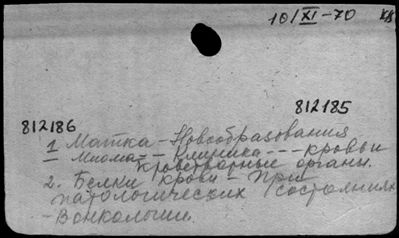 10/XI-70
812185
812186
1 Матка - Новообразования
Миома -- Клиника --- кровь и
кроветворные органы.
2. Белки крови - При
патологических состояниях
- В онкологии.